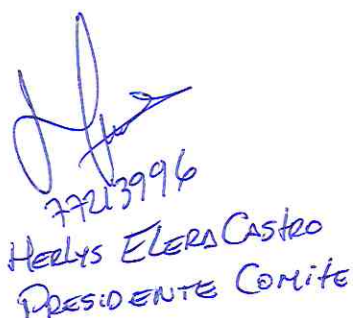 77213996
HERLYS ELERA CASTRO
PRESIDENTE COMITE